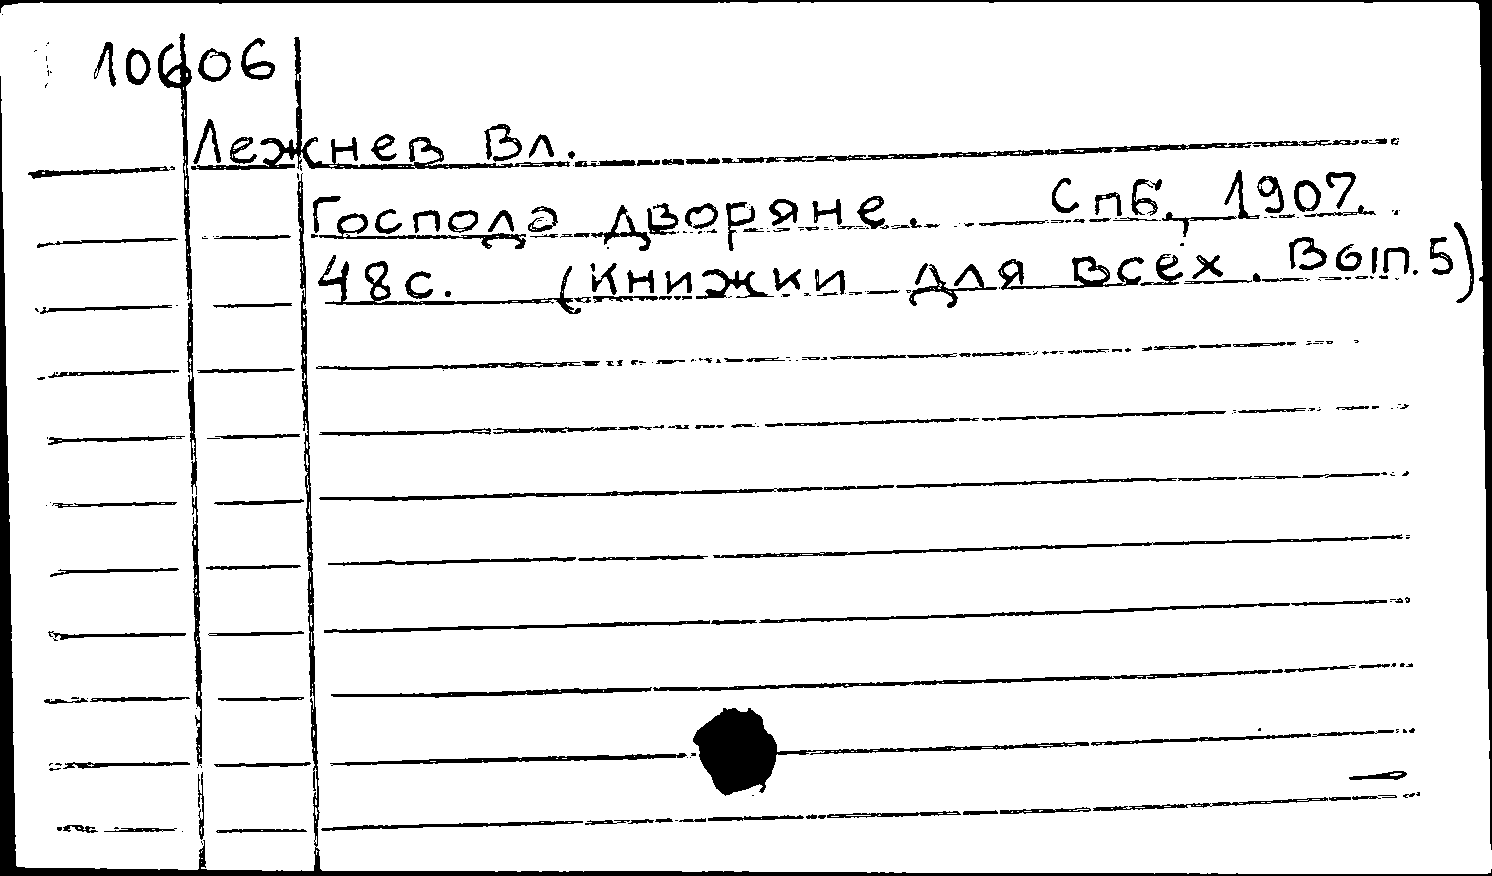 10606
Лежнев Вл.
Господа дворяне. Спб., 1907.
48 с. (Книжки для всех. Вып. 5).